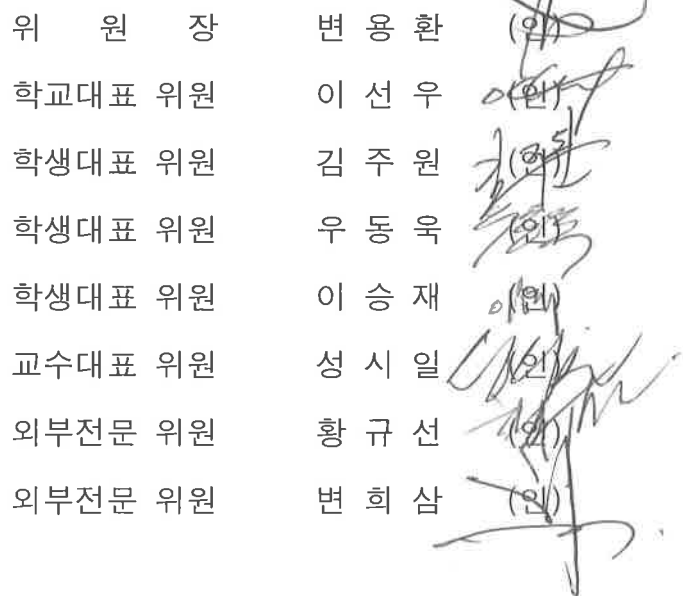 위 원 장 변 용 환 (인)
학교대표 위원 이 선 우 (인)
학생대표 위원 김 주 원 (인)
학생대표 위원 우 동 욱 (인)
학생대표 위원 이 승 재 (인)
교수대표 위원 성 시 일 (인)
외부전문 위원 황 규 선 (인)
외부전문 위원 변 희 삼 (인)